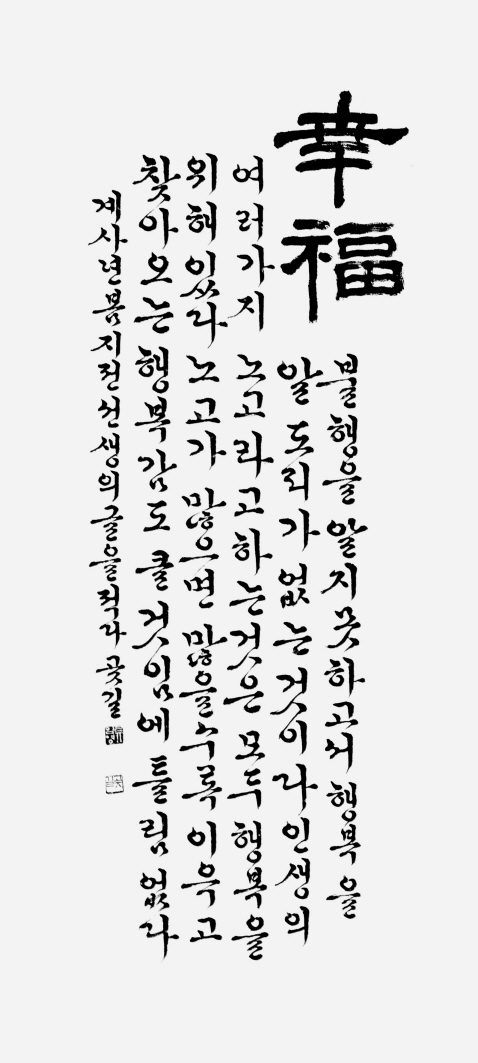 幸福
불행을 알지못하고서 행복을
알 도리가 없는 것이다 인생의
여러가지 노고라고하는것은 모두 행복을
위해 있다 노고가 많으면 많을수록 이윽고
찾아오는 행복감도 클것임에 틀림없다
계사년봄 지전선생의글을적다